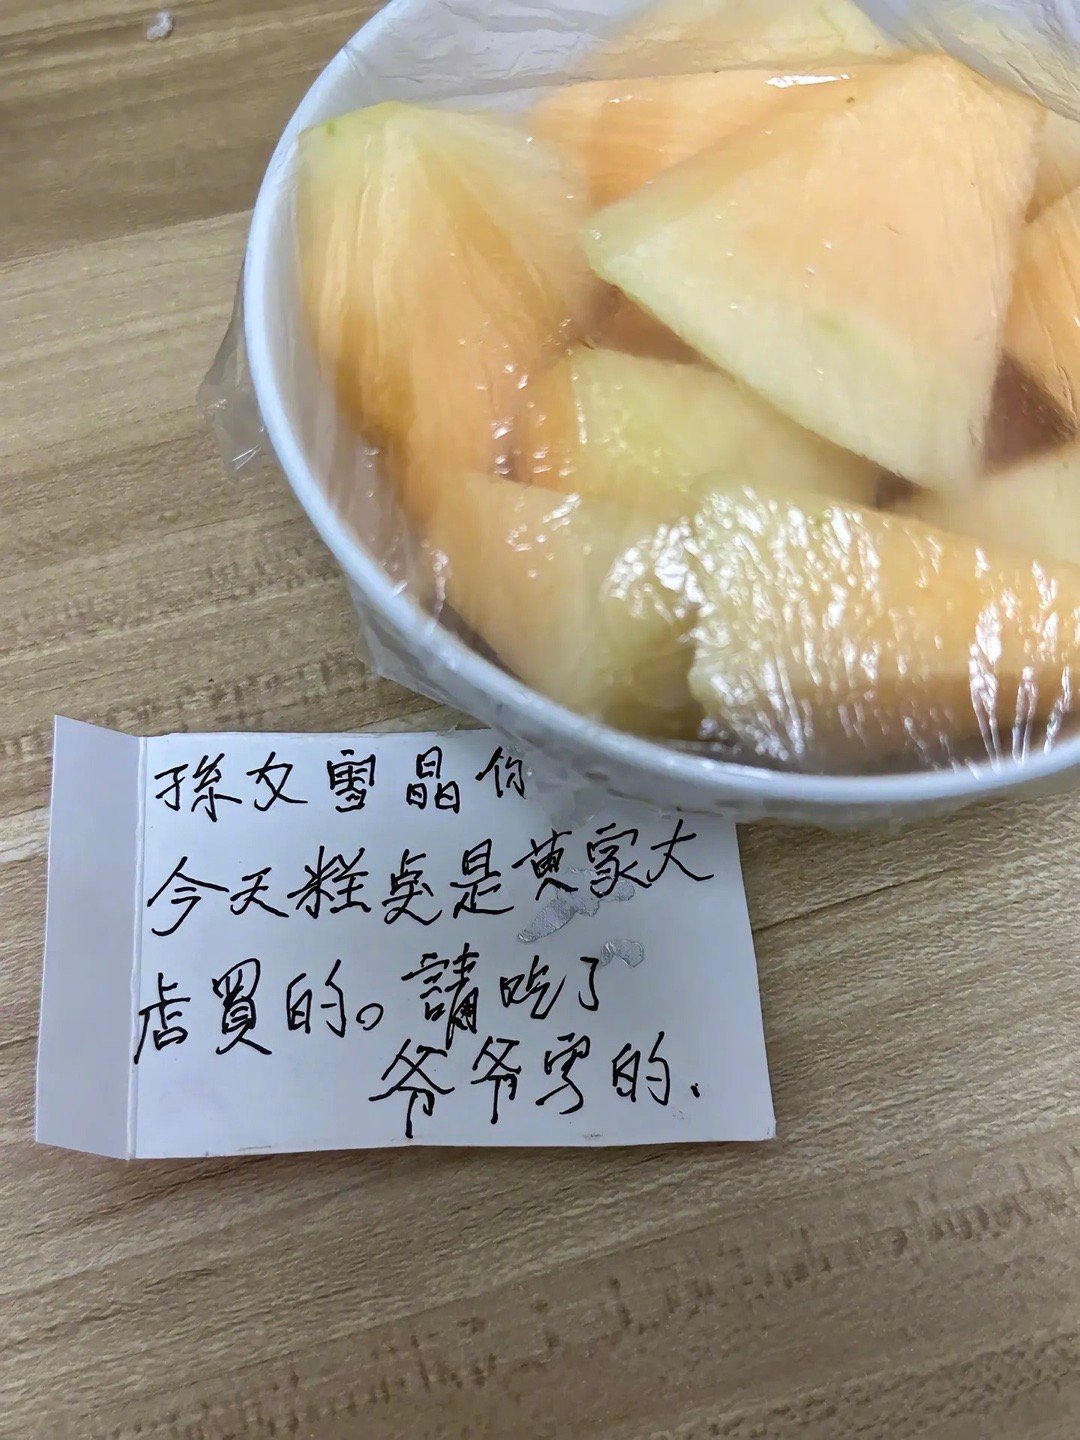 孫女雪晶你
今天糕桌是黄家大
店買的。請吃了
爷爷写的.